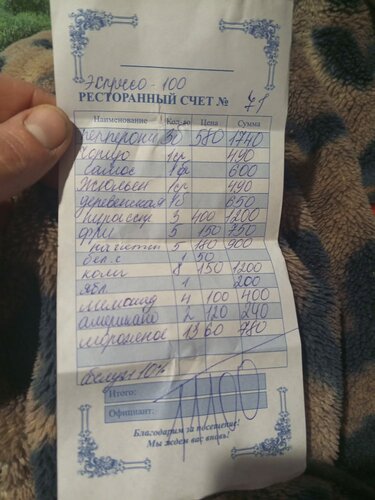 Экспрессо - 100
РЕСТОРАННЫЙ СЧЕТ № 71
Наименование Кол-во Цена Сумма
Пепперони 3б 580 1740
1ср 490
1б 600
Жюльен 1ср 490
деревенская 1б 650
3 400 1200
фри 5 150 750
наггетсы 5 900
бел. с 1 50
кола 8 150 1200
ябл. 1 200
лимонад 4 100 400
американо 2 120 240
мороженое 60
10%
Итого:
Официант:
Благодарим за посещение!
Мы ждем вас вновь!